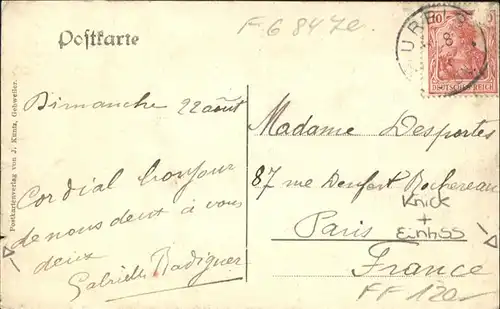 F 6 847e
Postkarte
URBIS
8
10
DEUTSCHES REICH
Postkartenverlag von J. Kuntz, Gebweiler.
Dimanche 22 août
Cordial bonjour
de nous deux à vous
deux
Gabrielle Badiguer
Madame Desportes
87 rue Denfert Rochereau
Knick
+
Paris Einriss
France
FF 120